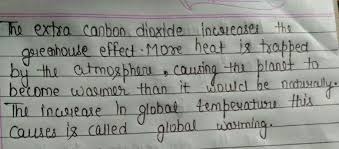 The extra carbon dioxide increases the
greenhouse effect. More heat is trapped
by the atmosphere, causing the planet to
become warmer than it would be naturally.
The increase In global temperature this
causes is called global warming.